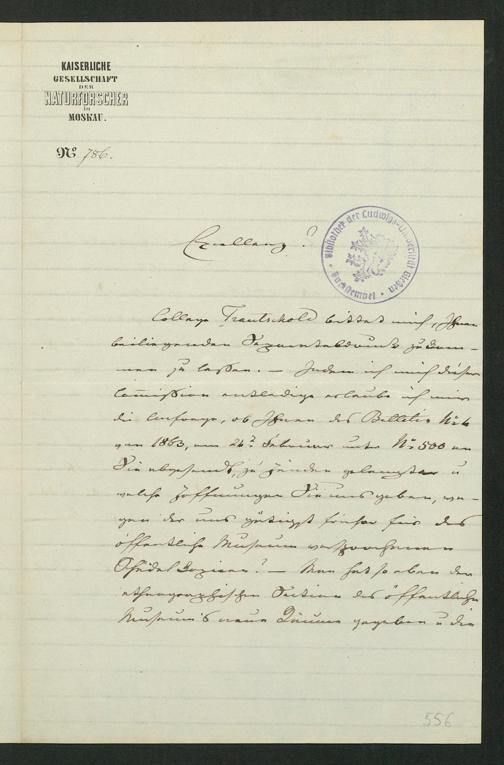 KAISERLICHE
GESELLSCHAFT
DER
NATURFORSCHER
in
MOSKAU.
No 786.
Excellenz!
Bibliothek der Ludwigs-Universität Giessen
College Trautschold bittet mich, Ihnen
beiliegenden Separatabdruck zukom-
men zu lassen. – Indem ich mich dieser
Commission entledige erlaube ich mir
die Anfrage, ob Ihnen das Bulletin No 4
von 1863, am 24. Februar unter No 500 an
Sie abgesandt, zu Händen gelangte u
welche Hoffnungen Sie uns geben, we-
gen der uns gütigst früher für das
öffentliche Museum versprochenen
Schädel Copieen? – Man hat so eben der
ethnographischen Section des öffentlichen
Museums neue Räume gegeben u die
556